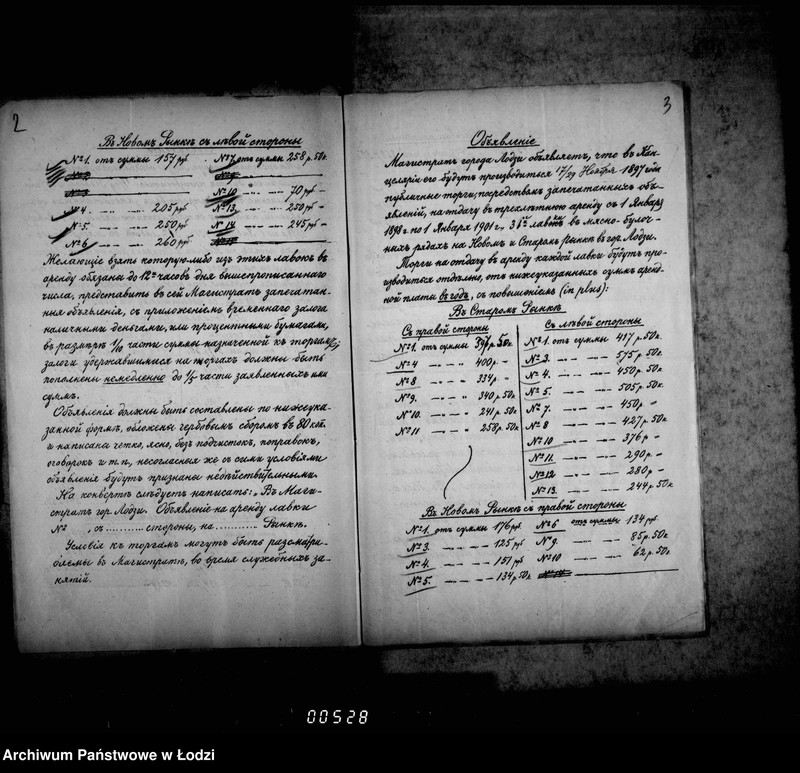 2
Въ Новомъ Рынкѣ съ лѣвой стороны
№ 1. отъ суммы 157 руб. № 7. отъ суммы 258 р. 50 к.
№ 10 — — 70 руб —
№ 4. — — 205 руб № 13. — — 250 руб —
№ 5. — — 250 руб № 14 — — 245 руб —
№ 6 — — 260 руб
Желающіе взять которую-либо изъ этихъ лавокъ въ
аренду обязаны до 12 часовъ дня вышепрописаннаго
числа, представить въ сей Магистратъ запечатан-
ныя объявленія, съ приложеніемъ временнаго залога
наличными деньгами, или процентными бумагами,
въ размѣрѣ 1/10 части суммы назначенной къ торгамъ,
залоги удержавшимися на торгахъ должны быть
пополнены немедленно до 1/5 части заявленныхъ ими
суммъ.
Объявленія должны быть составлены по нижеука-
занной формѣ, обложены гербовымъ сборомъ въ 80 коп.
и написаны четко, ясно, безъ подчистокъ, поправокъ,
оговорокъ и т.п., несогласныя же съ сими условіями
объявленія будутъ признаны недѣйствительными.
На конвертѣ слѣдуетъ написать: "Въ Маги-
стратъ гор. Лодзи. Объявленіе на аренду лавки
№ , съ .......... стороны, на .......... Рынкѣ.
Условія къ торгамъ могутъ быть разсматри-
ваемы въ Магистратѣ, во время служебныхъ за-
нятій.
3
Объявленіе
Магистратъ города Лодзи объявляетъ, что въ Кан-
целяріи его будутъ производиться 17/29 Ноября 1897 года
публичные торги, посредствомъ запечатанныхъ объ-
явленій, на отдачу въ трехлѣтнюю аренду съ 1 Января
1898 г. по 1 Января 1901 г., лавокъ въ мясно-булоч-
ныхъ рядахъ на Новомъ и Старомъ рынкѣ въ гор. Лодзи.
Торги на отдачу въ аренду каждой лавки будутъ про-
изводиться отдѣльно, отъ нижеуказанныхъ суммъ аренд-
ной платы въ годъ, съ повышеніемъ (in plus):
Въ Старомъ Рынкѣ
Съ правой стороны
№ 1. отъ суммы р. 50 к.
№ 4 — — 400 р. —
№ 8 — — 334 р. —
№ 9. — — 340 р. 50 к.
№ 10. — — 241 р. 50 к.
№ 11 — — 258 р. 50 к.
Съ лѣвой стороны
№ 1. отъ суммы 417 р. 50 к.
№ 3. — — 575 р. 50 к.
№ 4. — — 450 р. 50 к.
№ 5. — — 505 р. 50 к.
№ 7. — — 450 р. —
№ 8 — — 427 р. 50 к.
№ 10 — — 376 р. —
№ 11. — — 290 р. —
№ 12 — — 280 р. —
№ 13. — — 244 р. 50 к.
Въ Новомъ Рынкѣ съ правой стороны
№ 1. отъ суммы 176 руб. № 6 отъ суммы 134 руб
№ 3. — — 125 руб № 9. — — 85 р. 50 к.
№ 4. — — 151 руб № 10 — — 62 р. 50 к.
№ 5. — — 134 р. 50 к.
00528
Archiwum Państwowe w Łodzi